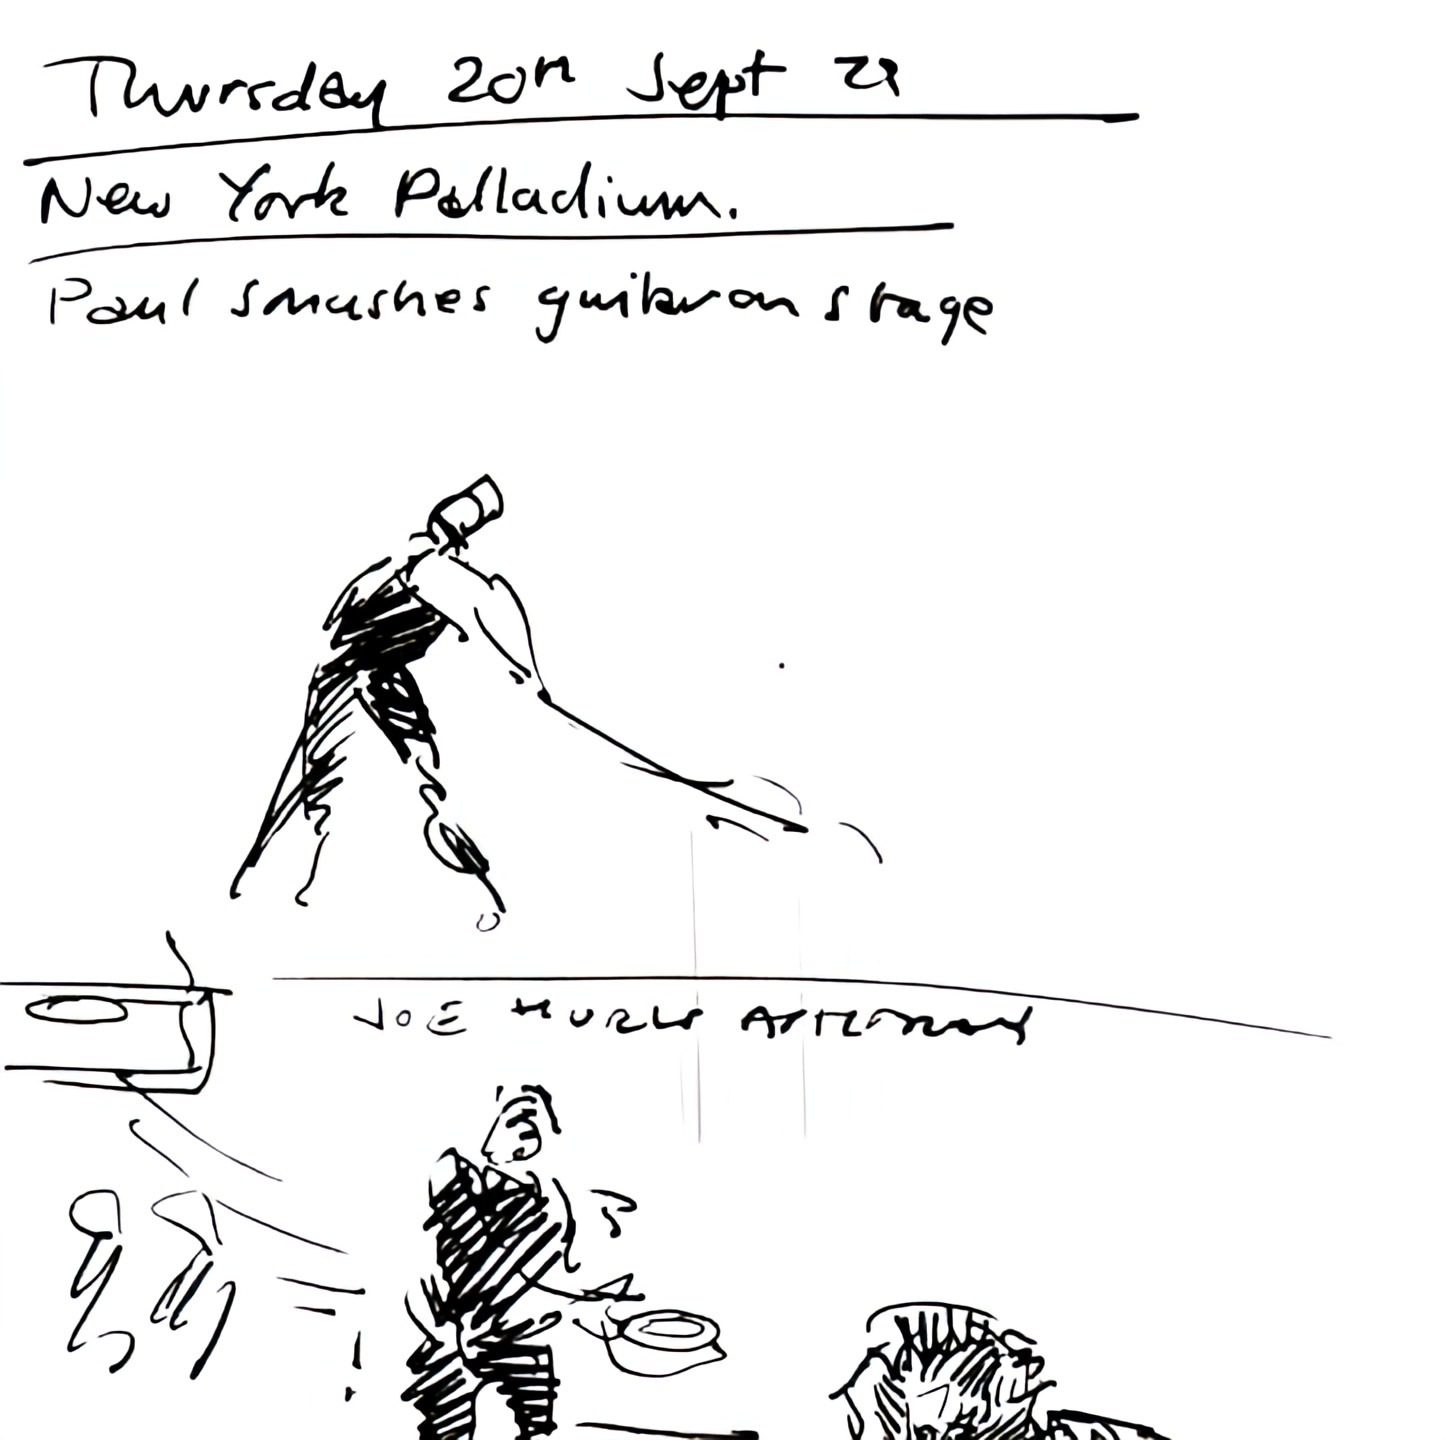 Thursday 20th Sept 21
New York Palladium.
Paul smashes guitar on stage
JOE HURLS